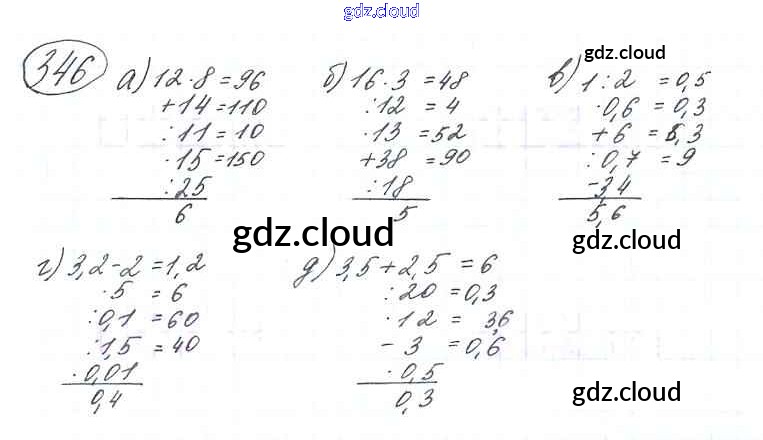 gdz.cloud
346
а) 12·8=96
+14=110
:11=10
·15=150
:25
6
б) 16·3=48
:12=4
·13=52
+38=90
:18
5
gdz.cloud
в) 1:2=0,5
·0,6=0,3
+6=6,3
:0,7=9
-3,4
5,6
gdz.cloud
gdz.cloud
г) 3,2-2=1,2
·5=6
:0,1=60
:1,5=40
·0,01
0,4
д) 3,5+2,5=6
:20=0,3
·12=3,6
-3=0,6
·0,5
0,3
gdz.cloud